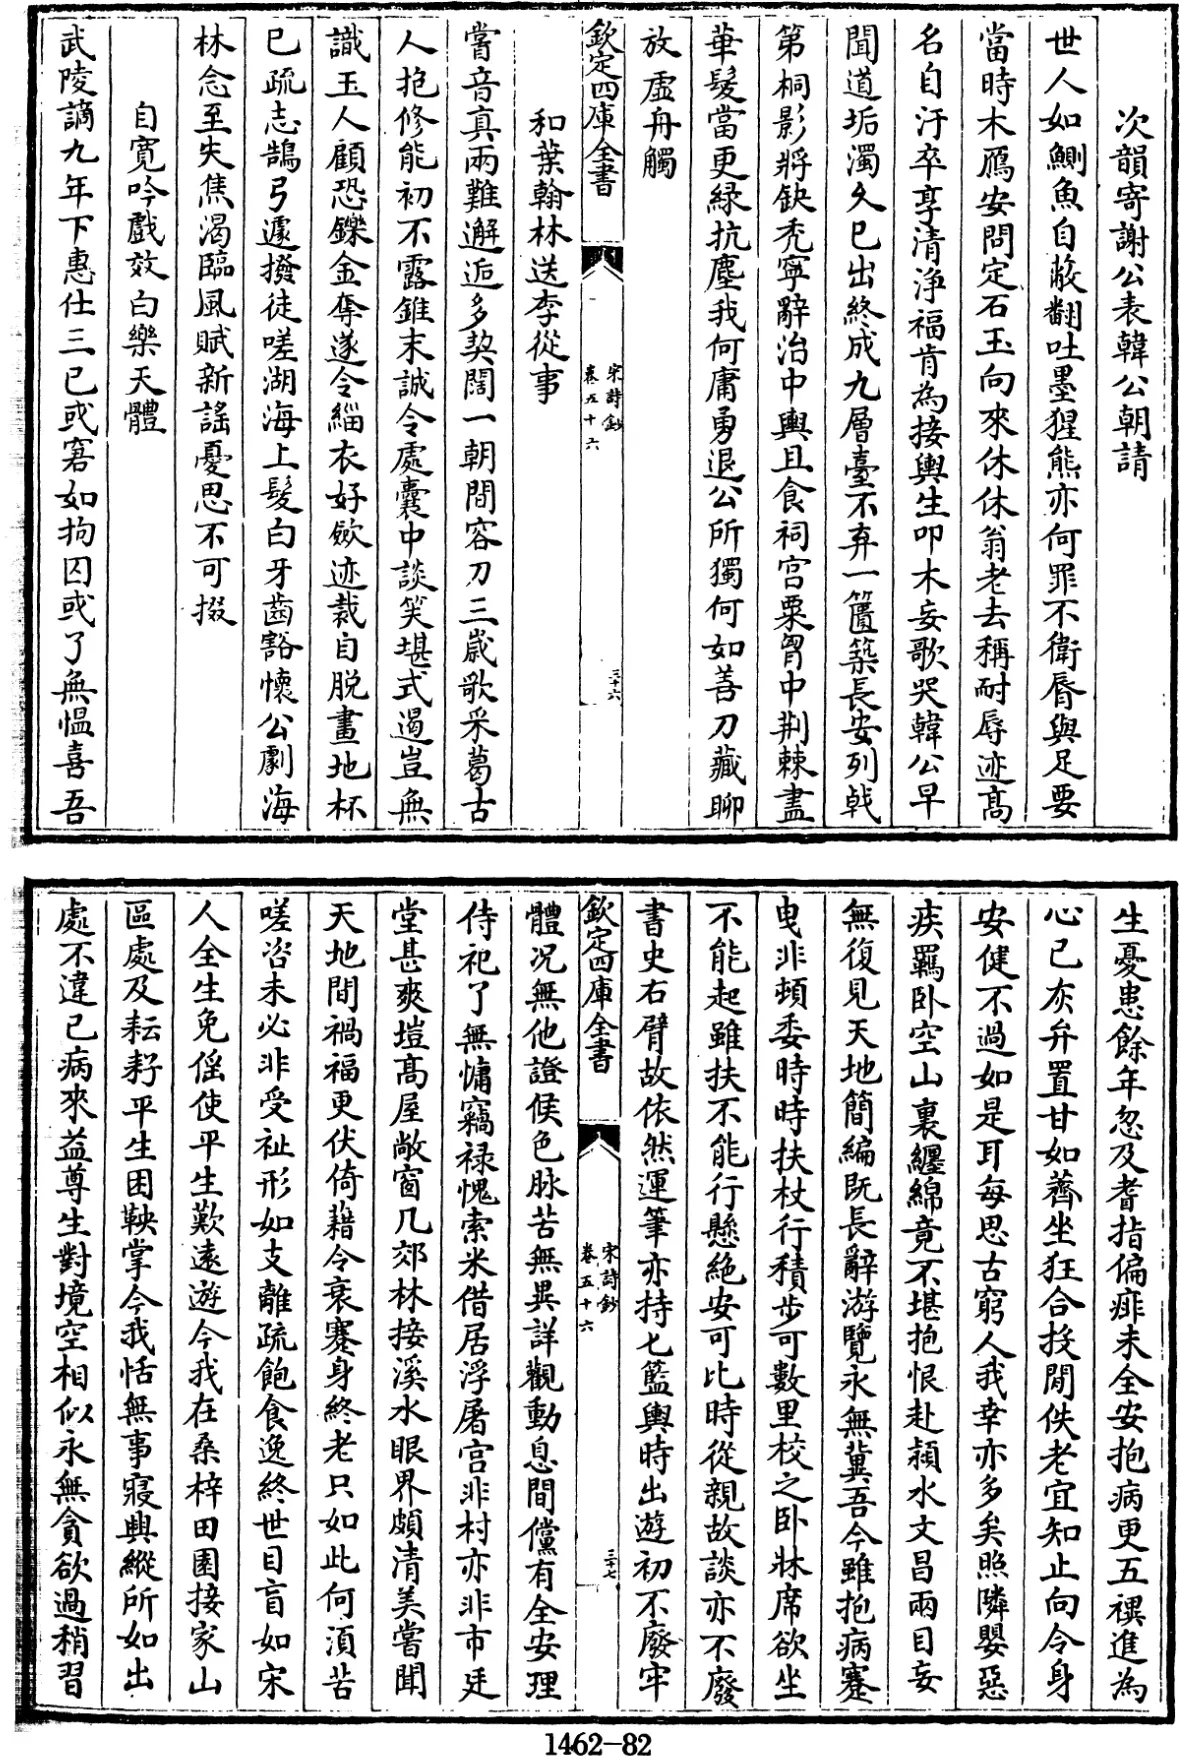 次韻寄謝公表韓公朝請
世人如鰂魚自蔽翻吐墨猩熊亦何罪不衛脣與足要
當時木鴈安問定石玉向來休休翁老去稱耐辱迹高
名自汙卒享清淨福肯為接輿生叩木妄歌哭韓公早
聞道垢濁久已出終成九層臺不弃一簣築長安列戟
第桐影將缺禿寧辭治中輿且食祠宮粟胷中荆棘盡
華髮當更緑抗塵我何庸勇退公所獨何如善刀藏聊
放虛舟觸
欽定四庫全書
宋詩鈔
卷五十六
三十六
和葉翰林送李從事
賞音真兩難邂逅多契闊一朝間容刀三歲歌采葛古
人抱修能初不露錐末誠令處囊中談笑堪式遏豈無
識玉人顧恐鑠金奪遂令緇衣好斂迹裁自脫畫地杯
已疏志鵠弓遽撥徒嗟湖海上髮白牙齒豁懷公劇海
林念至失焦渴臨風賦新謡憂思不可掇
自寬吟戲效白樂天體
武陵謫九年下惠仕三已或窘如拘囚或了無愠喜吾
生憂患餘年忽及耆指偏痱未全安抱病更五禩進為
心已灰弃置甘如薺坐狂合投閒佚老宜知止向今身
安健不過如是耳每思古窮人我幸亦多矣照隣嬰惡
疾羈卧空山裏纏綿竟不堪抱恨赴潁水文昌兩目妄
無復見天地簡編既長辭游覽永無冀吾今雖抱病蹇
曳非頓委時時扶杖行積步可數里校之卧牀席欲坐
不能起雖扶不能行懸絶安可比時從親故談亦不廢
書史右臂故依然運筆亦持匕籃輿時出遊初不廢牢
欽定四庫全書
宋詩鈔
卷五十六
三十七
體况無他證候色脉苦無異詳觀動息間儻有全安理
侍祀了無慵竊禄愧索米借居浮屠宫非村亦非市廷
堂甚爽塏高屋敞窗几郊林接溪水眼界頗清美嘗聞
天地間禍福更伏倚藉令衰蹇身終老只如此何須苦
嗟咨未必非受祉形如支離疏飽食逸終世目盲如宋
人全生免傜使平生歎遠遊今我在桑梓田園接家山
區處及耘耔平生困鞅掌今我恬無事寢興縱所如出
處不違己病來益尊生對境空相似永無貪欲過稍習
1462—82